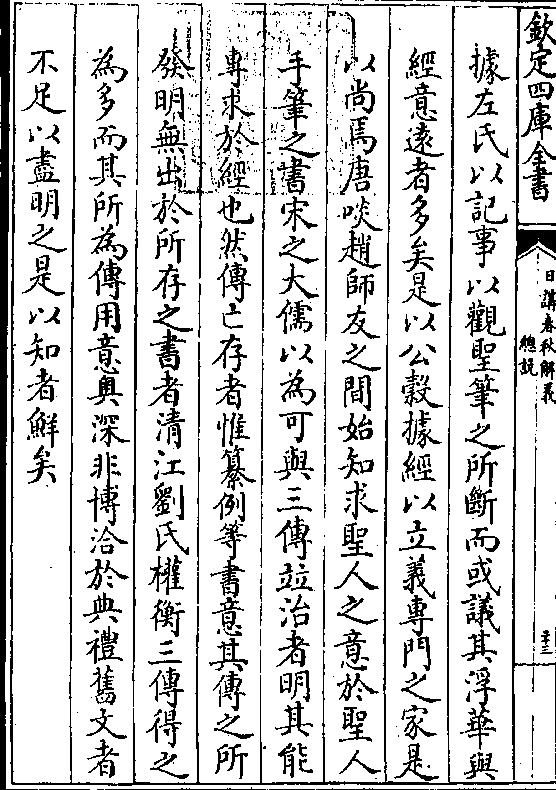 欽定四庫全書
日講春秋解義
總說
據左氏以記事以觀聖筆之所斷而或議其浮華與
經意遠者多矣是以公穀據經以立義專門之家是
以尚焉唐啖趙師友之間始知求聖人之意於聖人
手筆之書宋之大儒以為可與三傳竝治者明其能
專求於經也然傳亡存者惟纂例等書意其傳之所
發明無出於所存之書者清江劉氏權衡三傳得之
為多而其所為傳用意奧深非博洽於典禮舊文者
不足以盡明之是以知者鮮矣